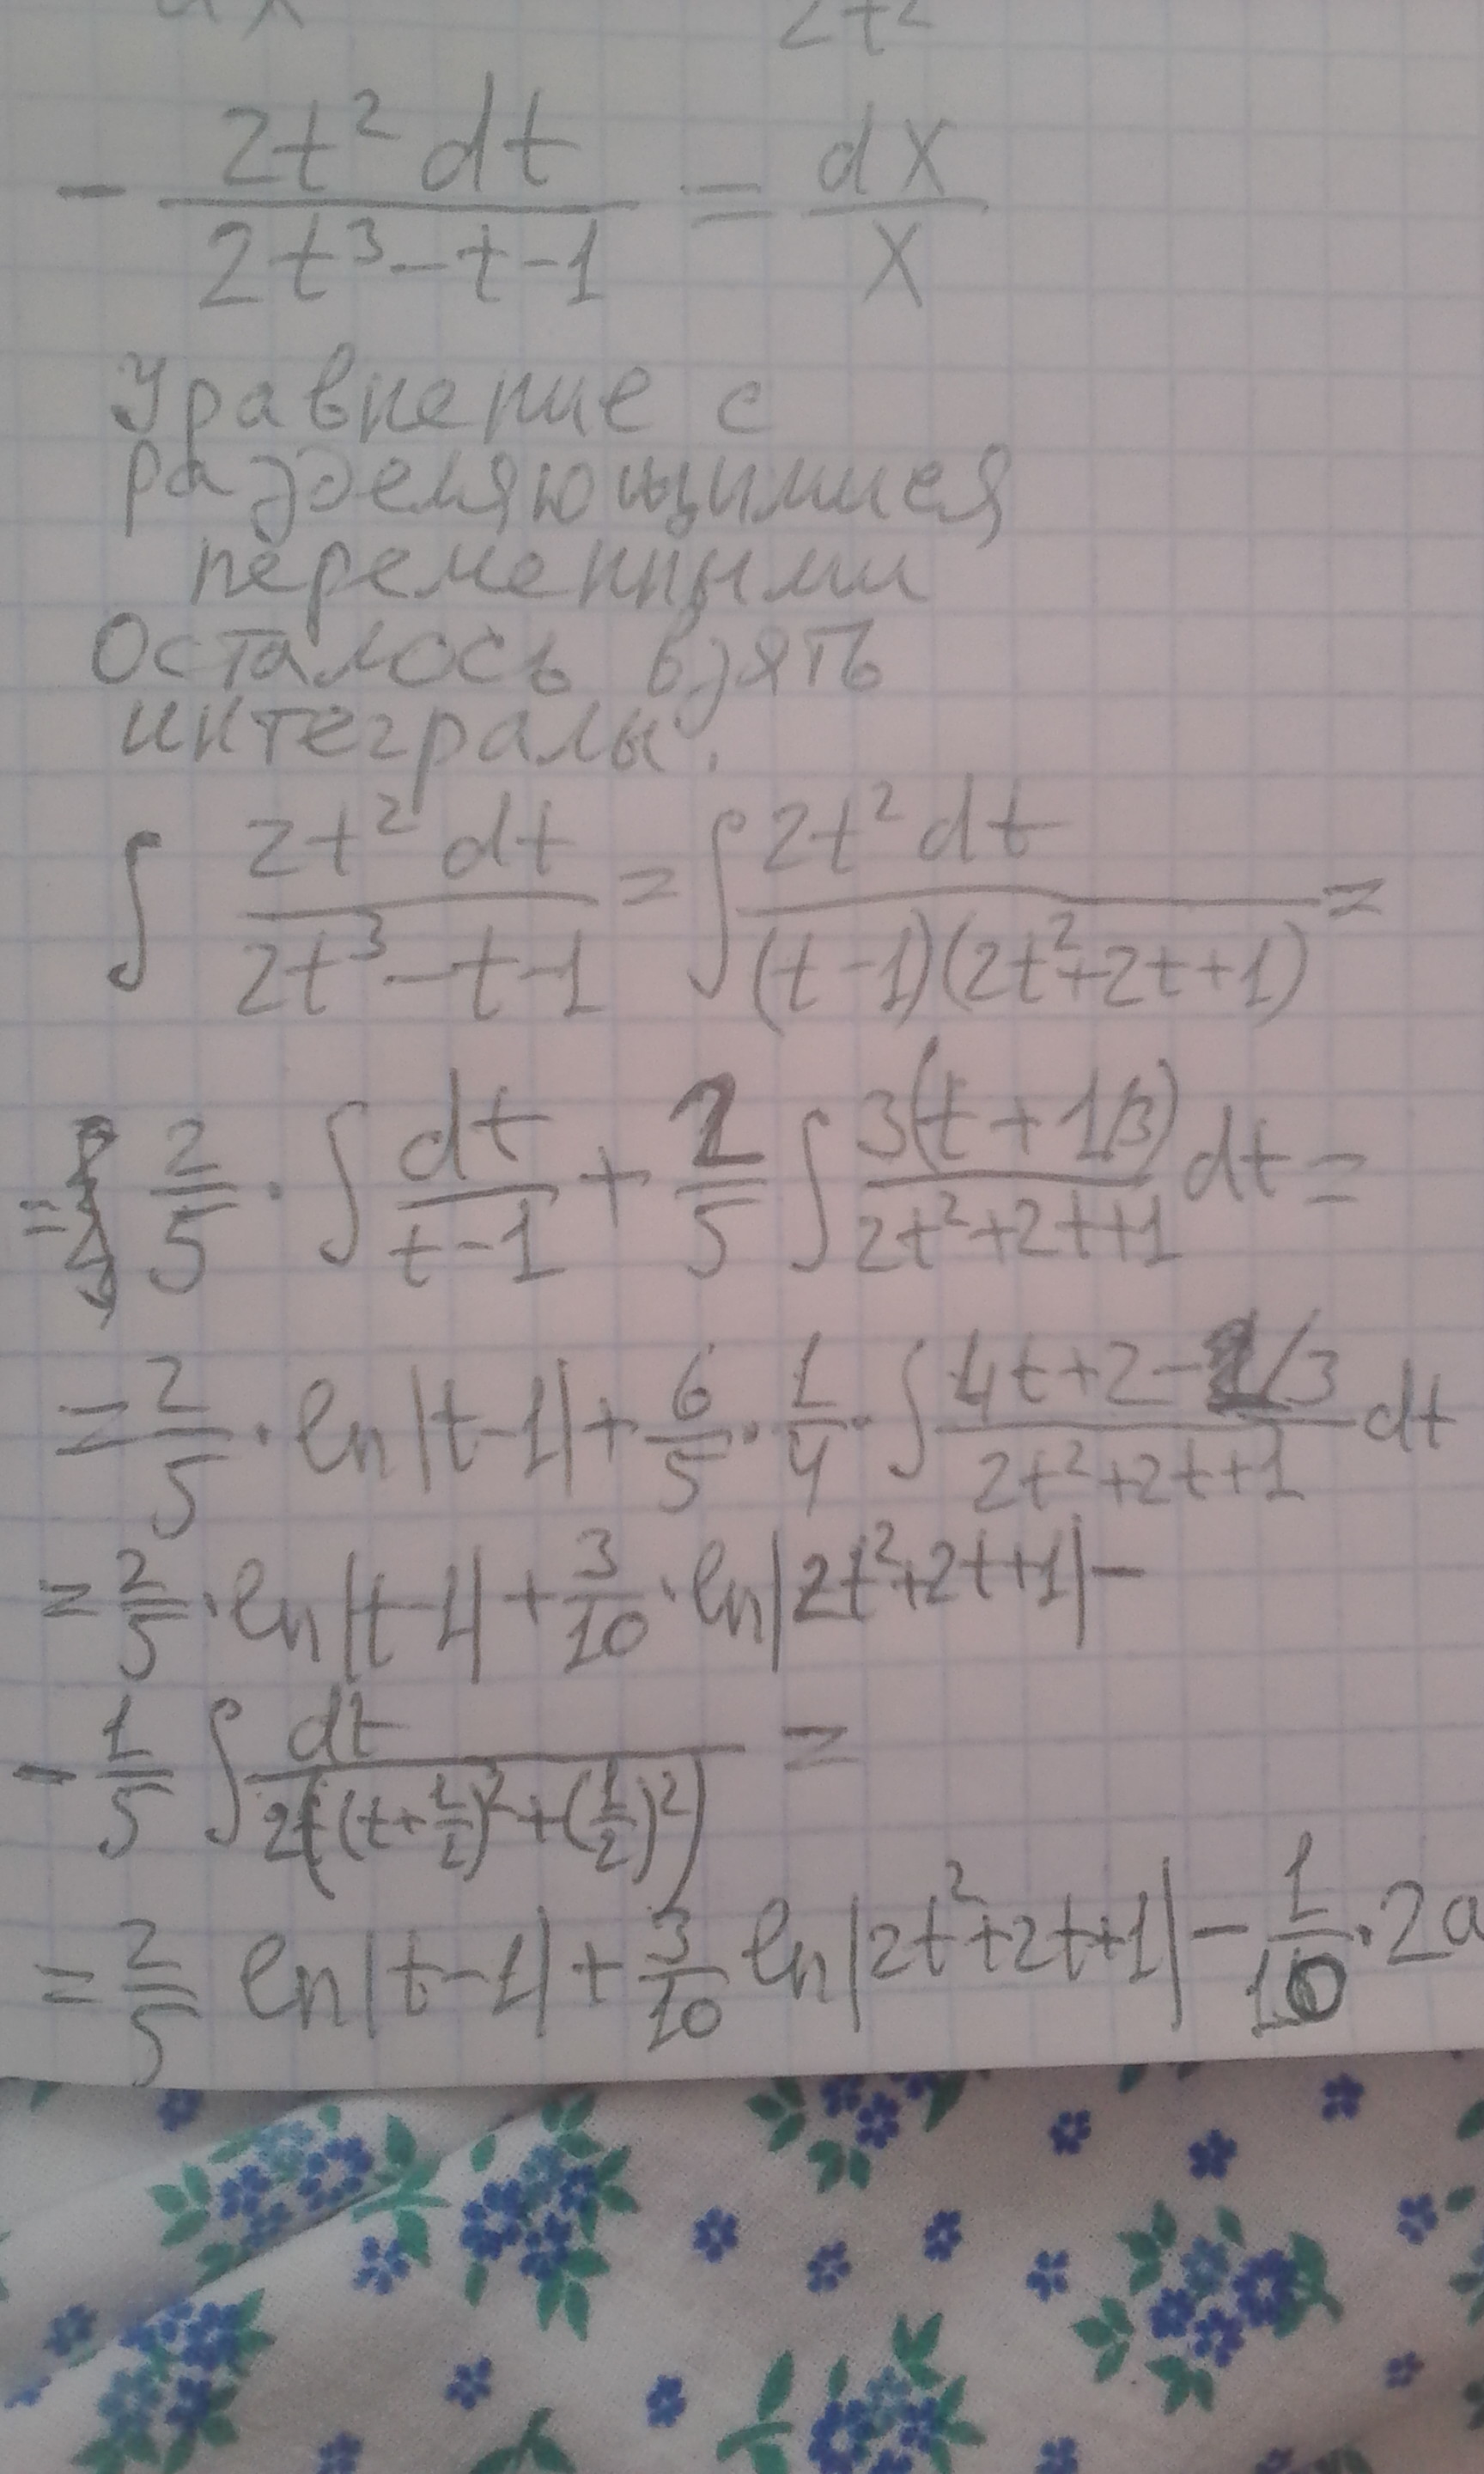 2t²
- 2t² dt / (2t³-t-1) = dx / x
Уравнение с
разделяющимися
переменными
Осталось взять
интегралы.
∫ 2t² dt / (2t³-t-1) = ∫ 2t² dt / ((t-1)(2t²+2t+1)) =
= 2/5 · ∫ dt / (t-1) + 2/5 ∫ 3(t+1/3) / (2t²+2t+1) dt =
= 2/5 · ln|t-1| + 6/5 · 1/4 · ∫ (4t+2-2/3) / (2t²+2t+1) dt
= 2/5 · ln|t-1| + 3/10 · ln|2t²+2t+1| -
- 1/5 ∫ dt / (2((t+1/2)²+(1/2)²)) =
= 2/5 ln|t-1| + 3/10 ln|2t²+2t+1| - 1/10 · 2a